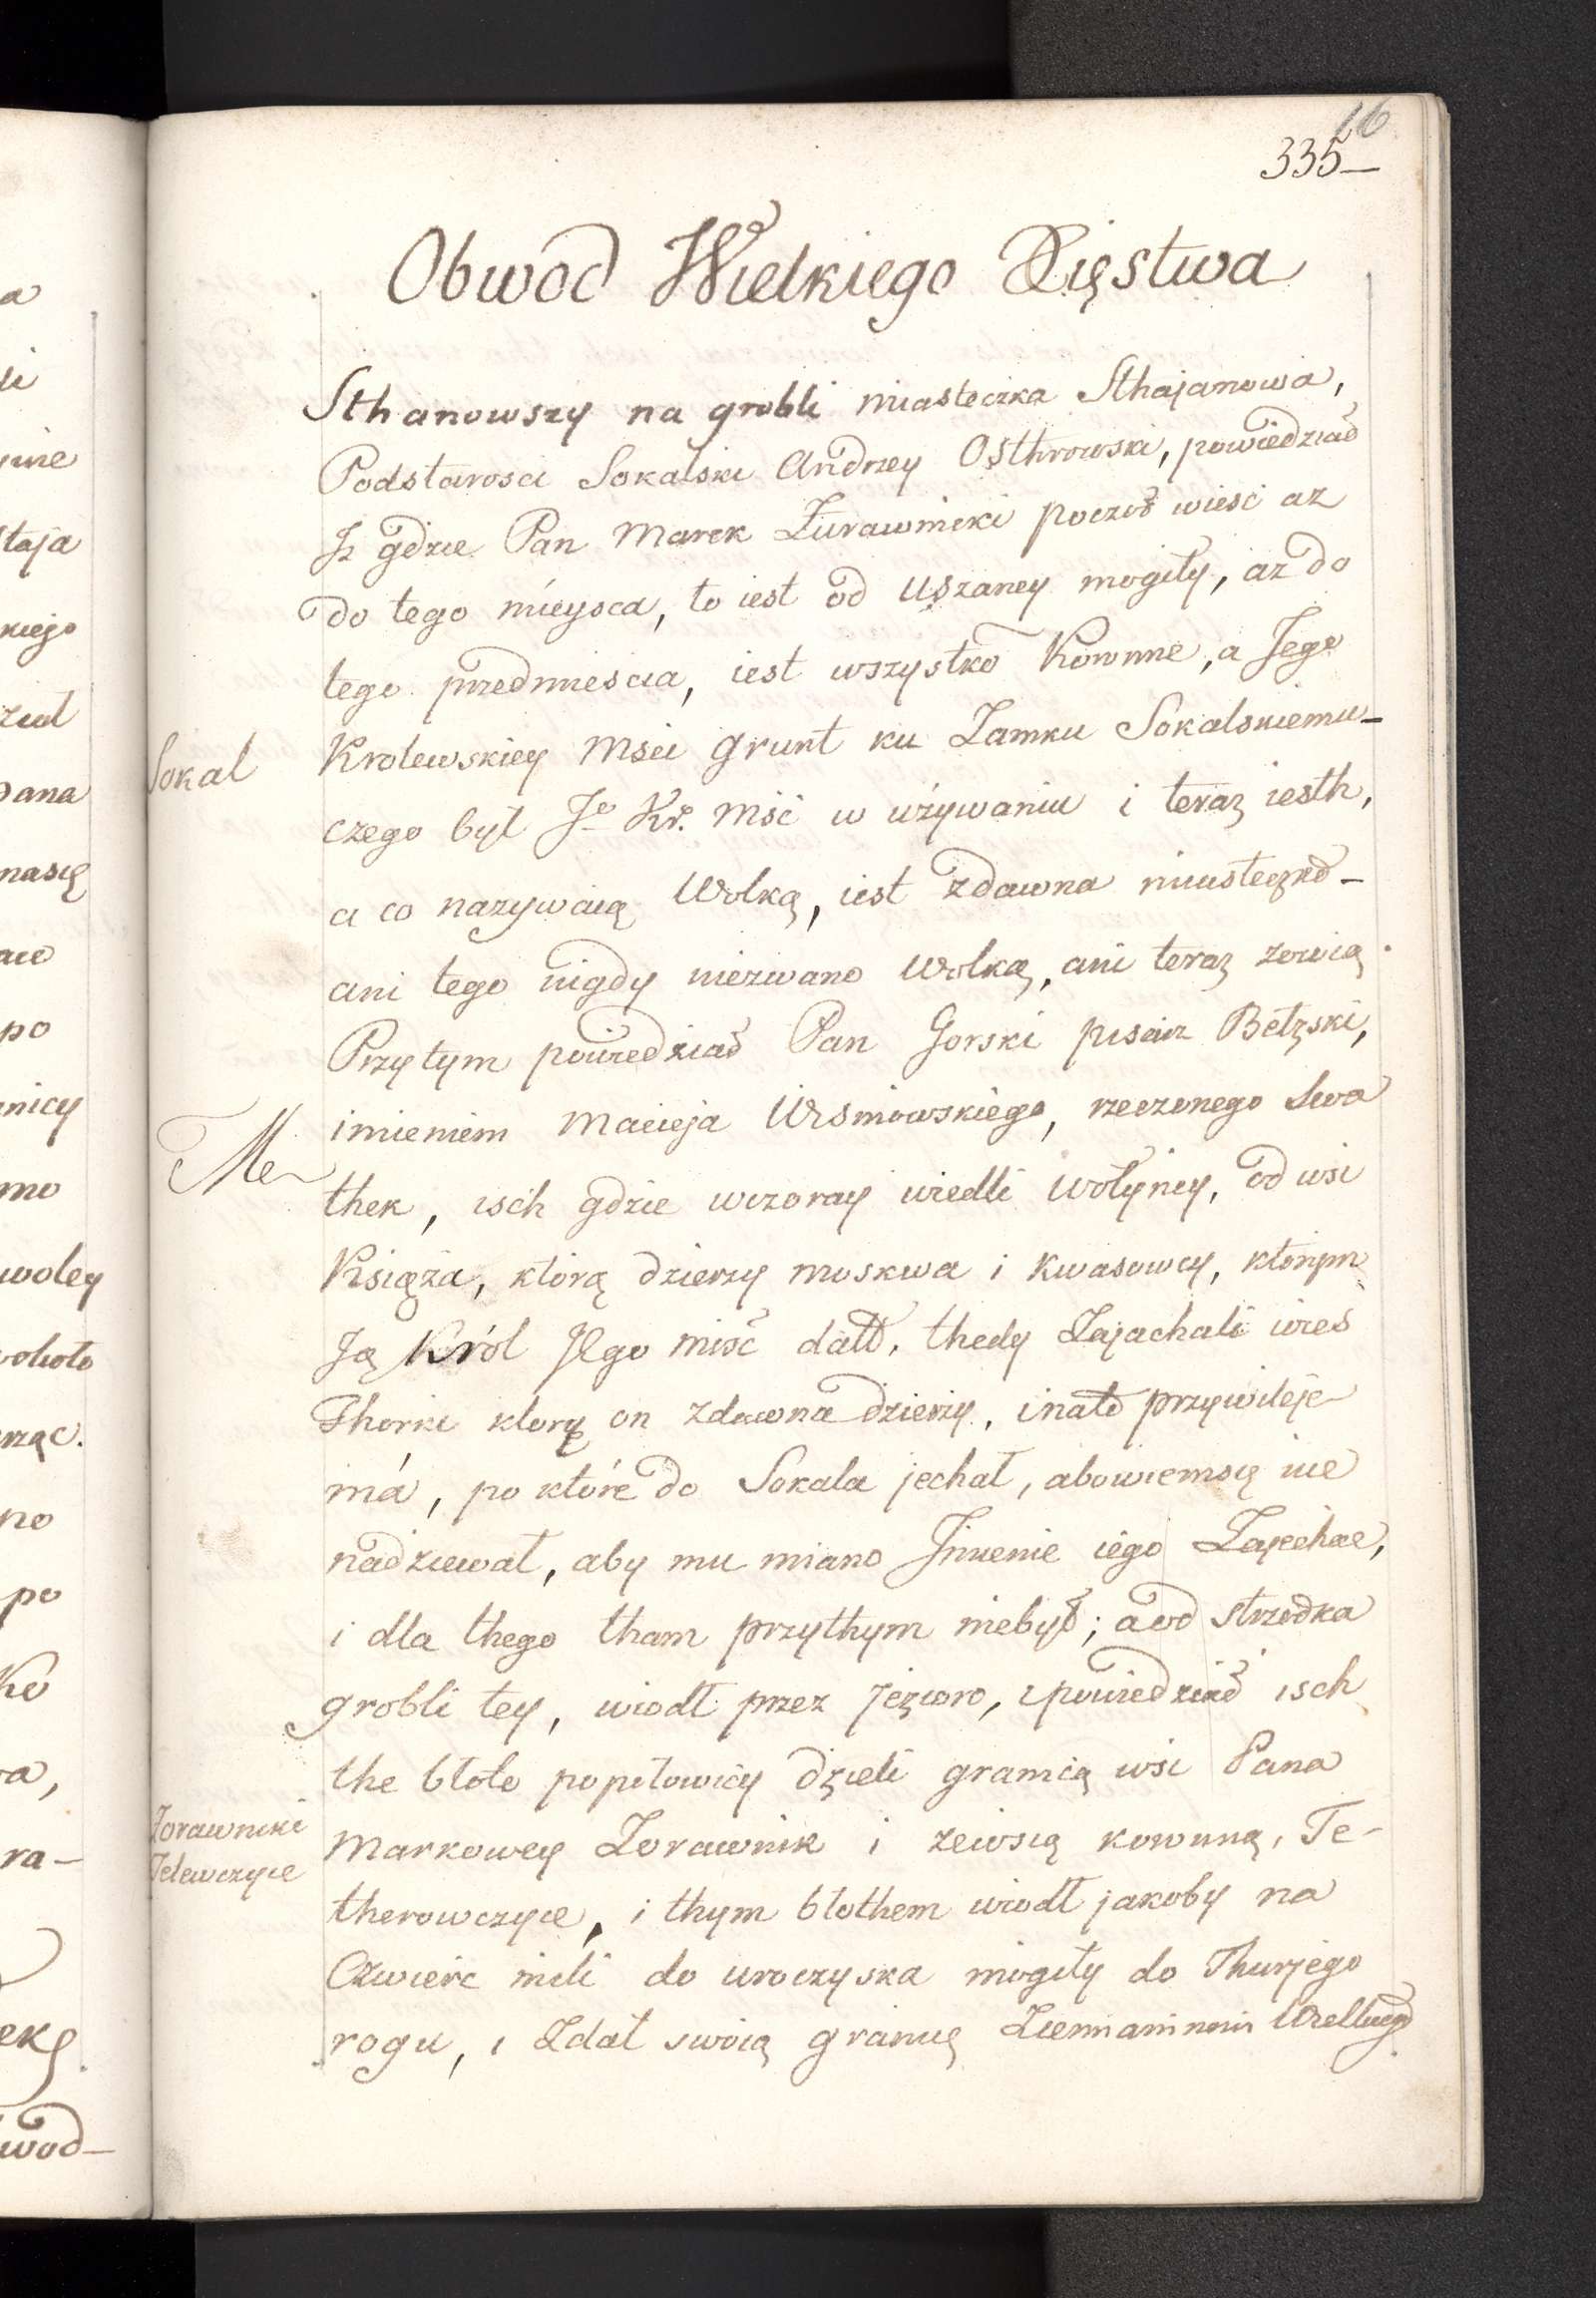 16
335
Obwod Wielkiego Xięstwa
Sthanowszy na grobli miasteczka Sthajanowa,
Podstarosci Sokalski Andrzey Osthrowski, powiedział
Jz gdzie Pan Marek Zurawnicki poczoł wiesc az
do tego mieysca, to iest od Uszaney mogiły, az do
tego przedmiescia, iest wszystko Kownne, a Jego
Krolewskiey Msci grunt ku Zamku Sokalskiemu
Sokal
czego był Jo Kr. Mść w używaniu i teraz iesth,
a co nazywaią Wolką, iest zdawna miasteczko
ani tego nigdy niezwano Wolką, ani teraz zowią.
Przytym powiedział Pan Gorski pisarz Bełzski,
imieniem Macieja Wismowskiego, rzeczonego Swa
thek, isch gdzie wczoray wiedli wołyńcy, od wsi
Księża, ktorą dzierzy moskwa i Kwasowcy, ktorym
Ją Król Jego miść dałł, thedy Zajachali wieś
Thorki ktorę on zdawna dzierzy, i nato przywileje
má, po które do Sokala jechał, abowiemsię nie
nadziewał, aby mu miano Jmienie iego Zajechac,
i dla thego tham przythym niebył; a od strzodka
grobli tey, wiodł przez Jezioro, i powiedział isch
the błoto popiłowicy dzieli granicą wsi Pana
Zorawniki
Telewczyce
Markowey Zorawnik i zewsią kownną, Te-
therowczyce, i thym błothem wiodł jakoby na
Czwierc mili do uroczyska mogiły do Thurjego
rogu, i Zdał swoią granicę Ziemianinowi